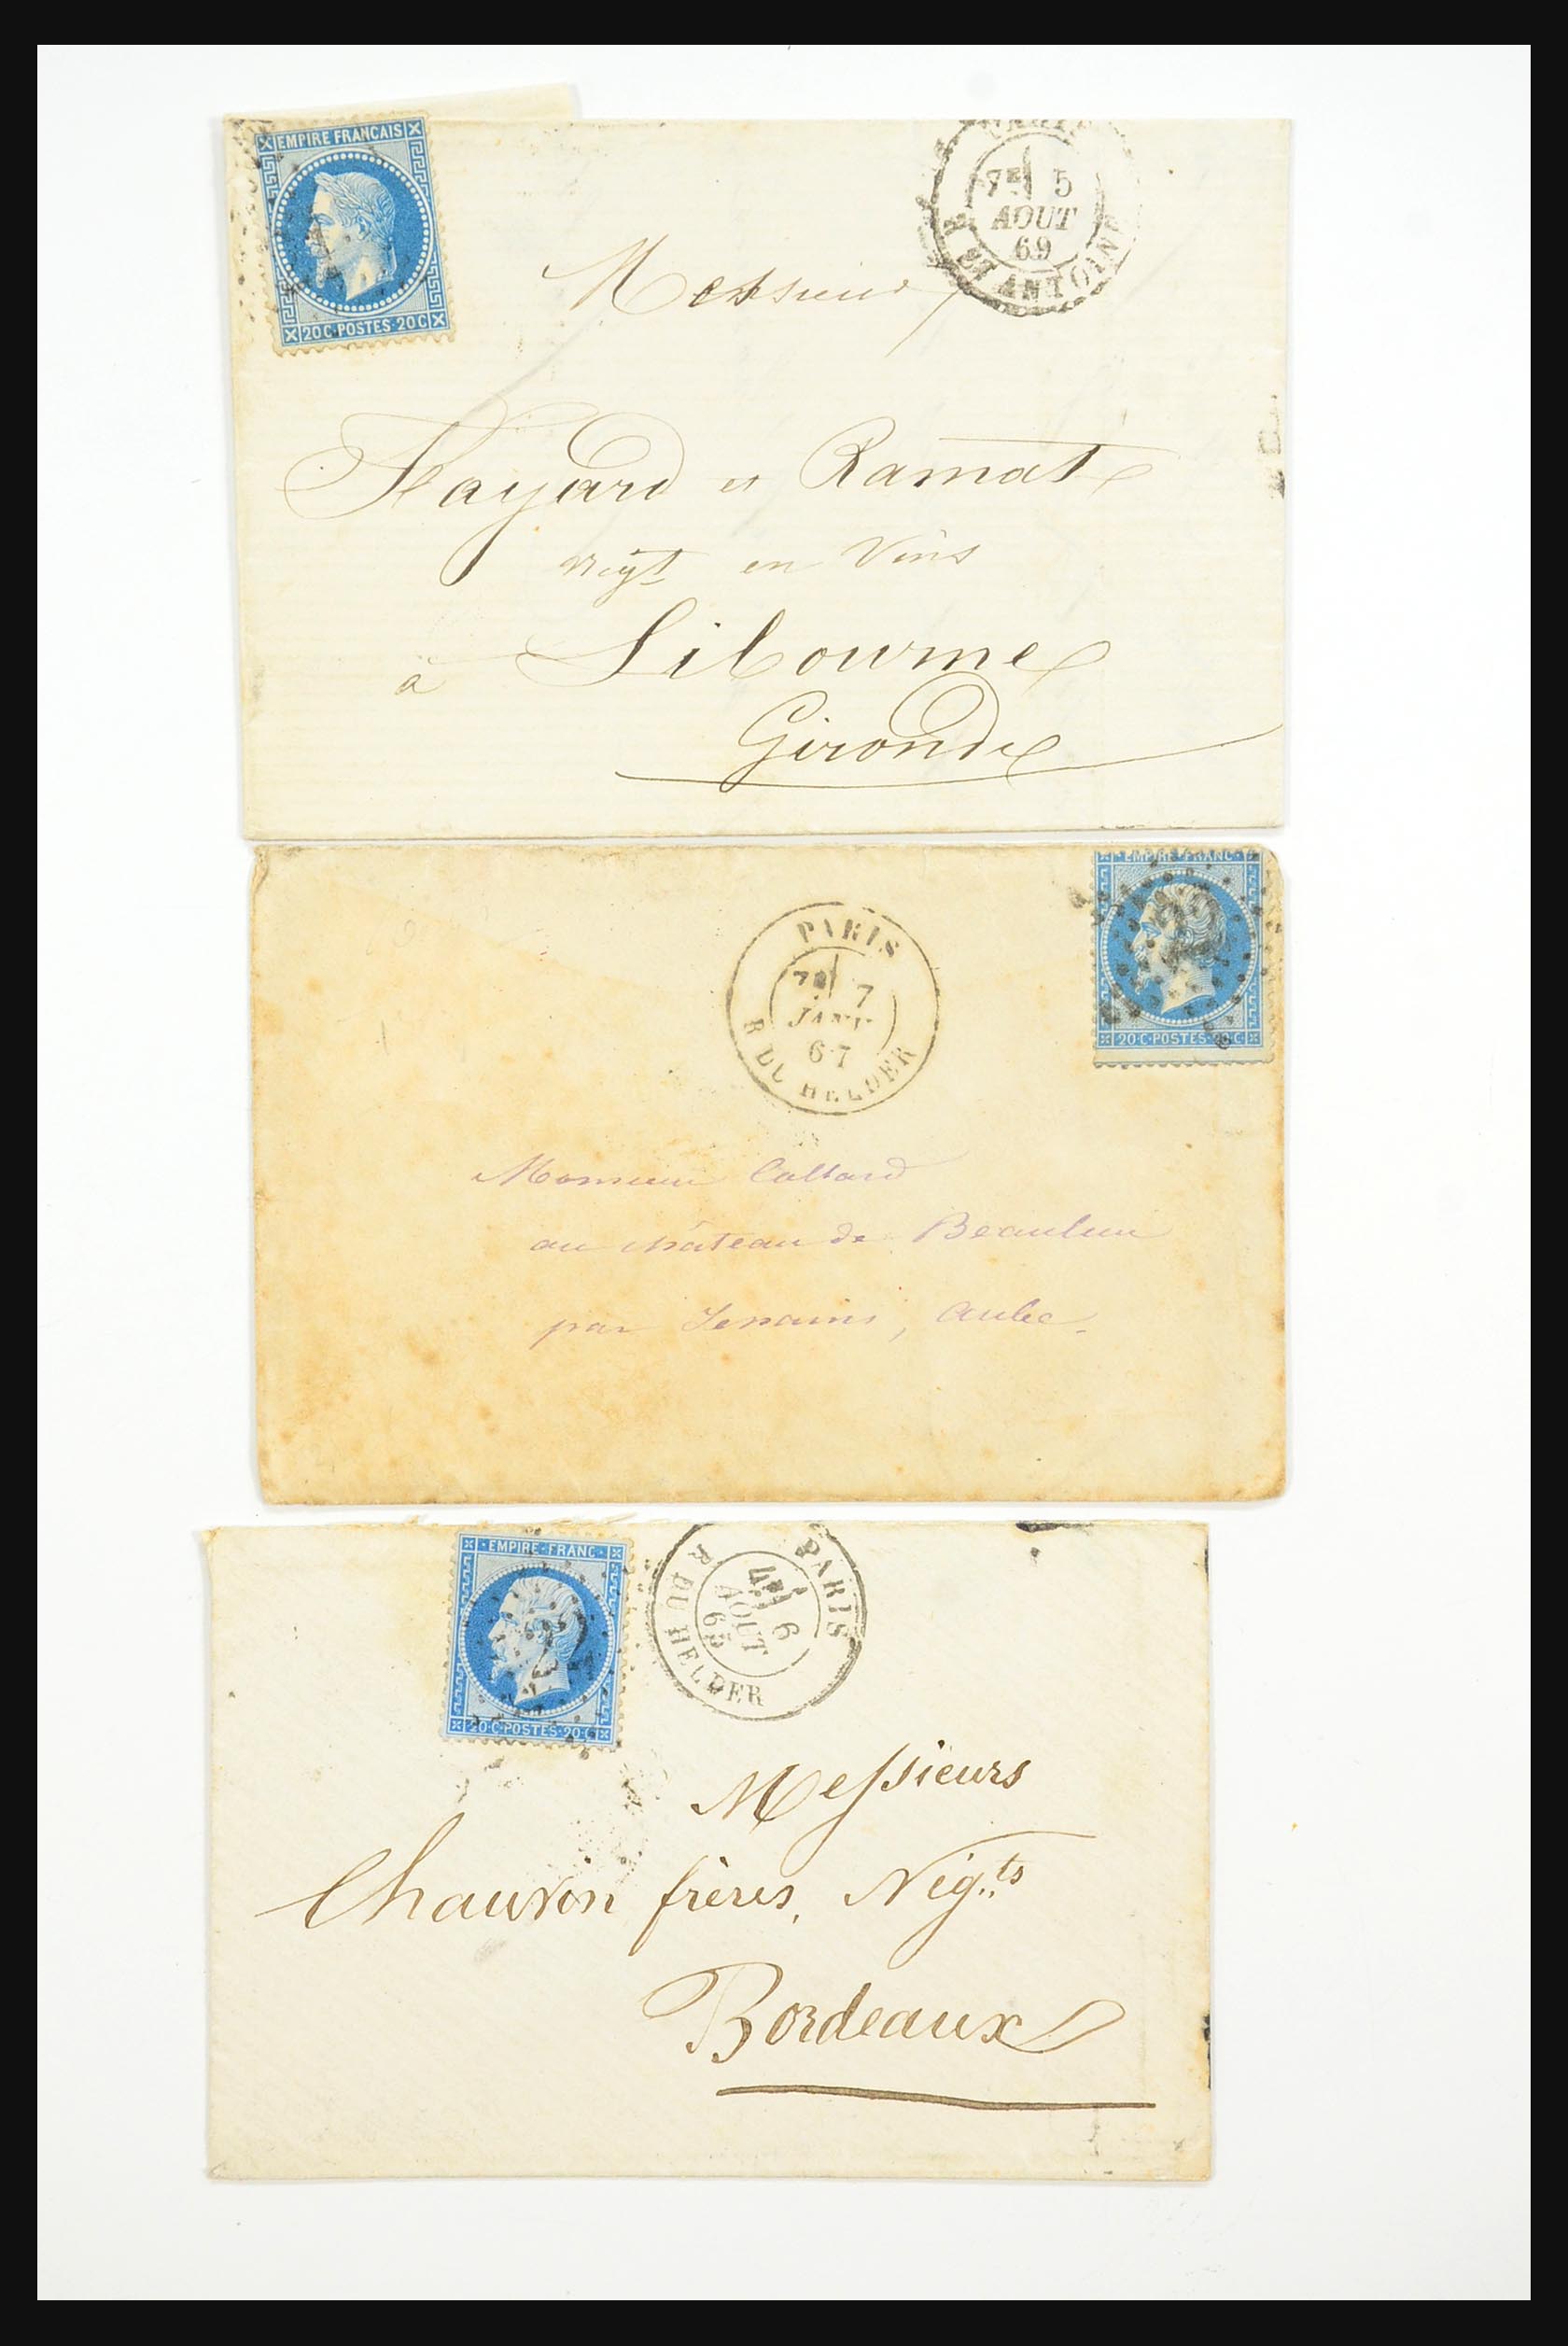 EMPIRE FRANÇAIS
20 C · POSTES · 20 C
7E 5
AOUT
69
Messieurs
Fayard et Ramat
négt en Vins
à Libourne
Gironde
EMPIRE · FRANC ·
20 · C · POSTES · 20 · C
PARIS
7E 7
JANV
67
R DU HELDER
Monsieur
au château de Beaulieu
par , Aube.
· EMPIRE · FRANC ·
22
20 · C · POSTES · 20 · C
PARIS
6
AOUT
65
R DU HELDER
Messieurs
Chauvin frères, Négts
Bordeaux